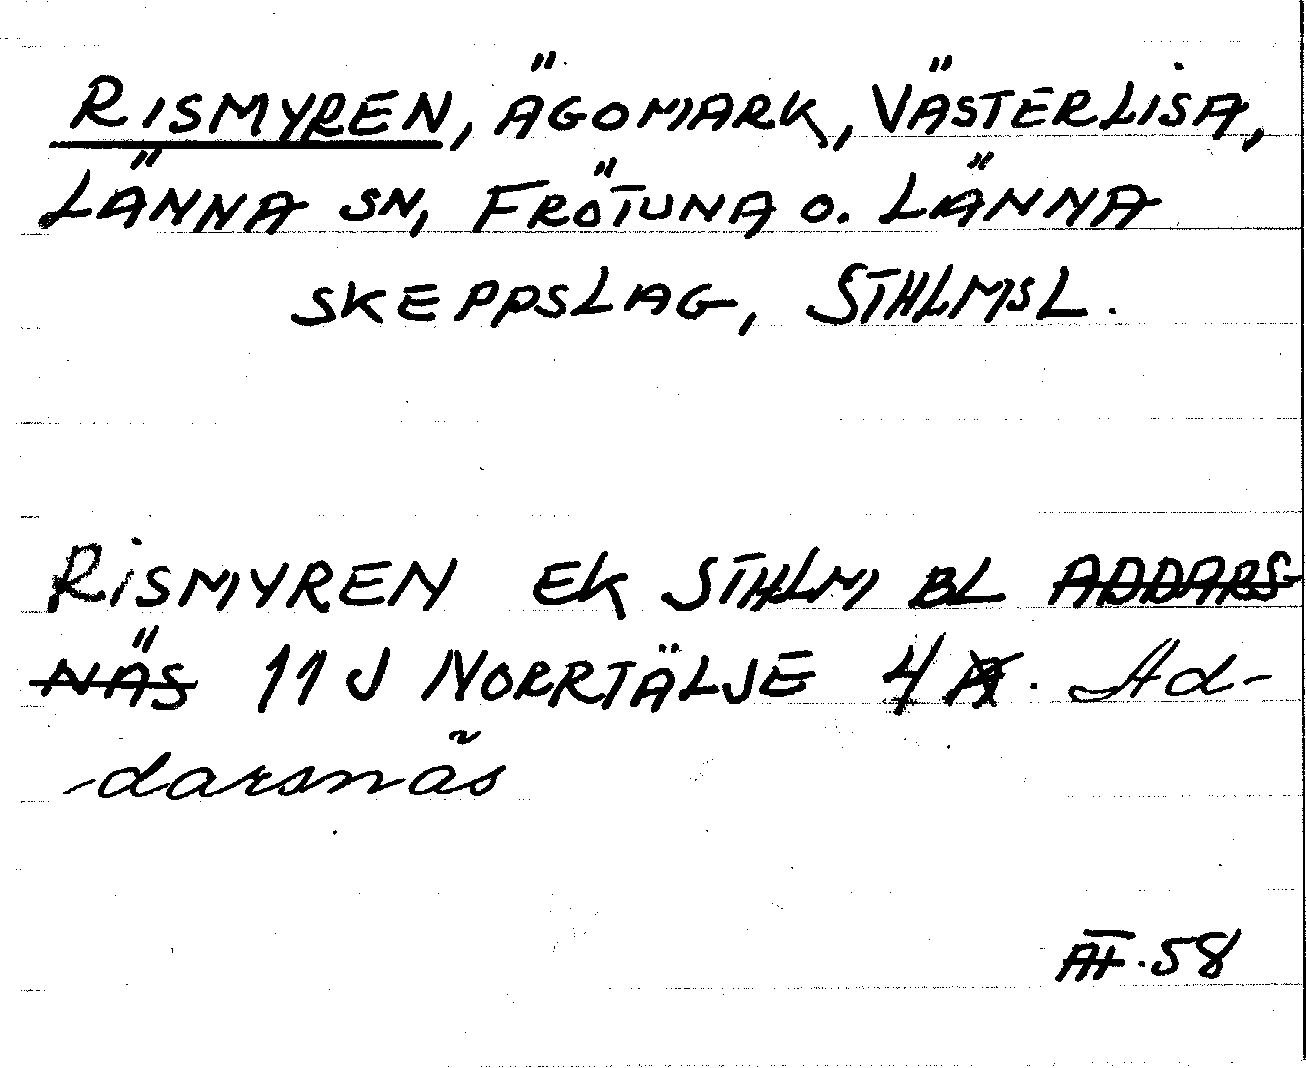 RISMYREN, ÄGOMARK, VÄSTERLISA,
LÄNNA SN, FRÖTUNA O. LÄNNA
SKEPPSLAG, STHLMSL.
RISMYREN EK STHLM BL ADDARS
NÄS 11J NORRTÄLJE 4 . Ad-
darsnäs
58